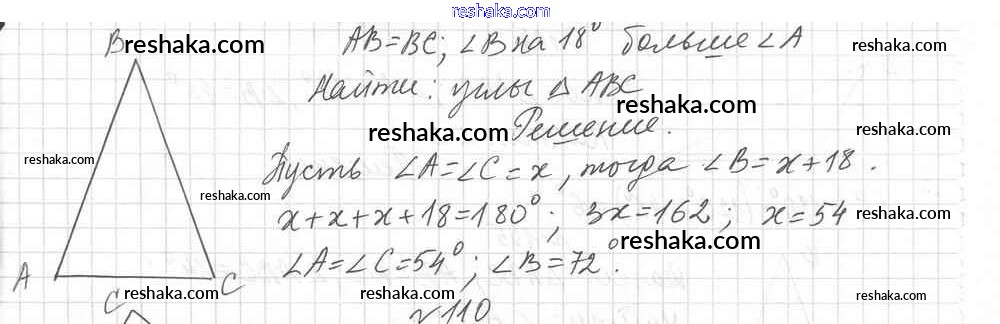 reshaka.com
B reshaka.com AB=BC; ∠B на 18° больше ∠A reshaka.com
Найти: углы △ ABC reshaka.com
reshaka.com Решение. reshaka.com
reshaka.com Пусть ∠A=∠C=x, тогда ∠B=x+18.
reshaka.com reshaka.com
x+x+x+18=180°; 3x=162; x=54 reshaka.com
∠A=∠C=54°; ∠B=72°. reshaka.com
A C
C reshaka.com reshaka.com reshaka.com
№110